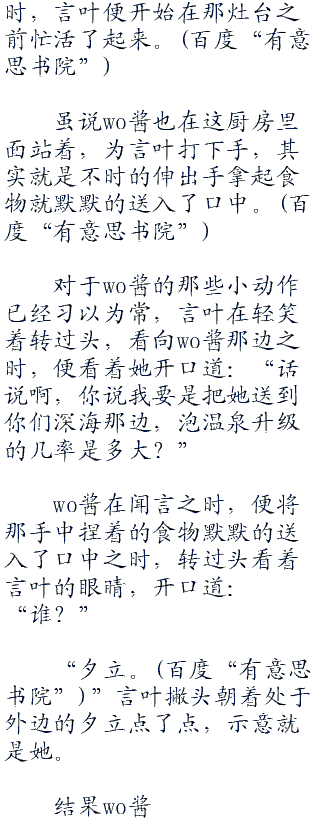 时，言叶便开始在那灶台之
前忙活了起来。(百度“有意
思书院”)
虽说wo酱也在这厨房里
面站着，为言叶打下手，其
实就是不时的伸出手拿起食
物就默默的送入了口中。(百
度“有意思书院”)
对于wo酱的那些小动作
已经习以为常，言叶在轻笑
着转过头，看向wo酱那边之
时，便看着她开口道：“话
说啊，你说我要是把她送到
你们深海那边，泡温泉升级
的几率是多大？”
wo酱在闻言之时，便将
那手中捏着的食物默默的送
入了口中之时，转过头看着
言叶的眼睛，开口道：
“谁？”
“夕立。(百度“有意思
书院”)”言叶撇头朝着处于
外边的夕立点了点，示意就
是她。
结果wo酱